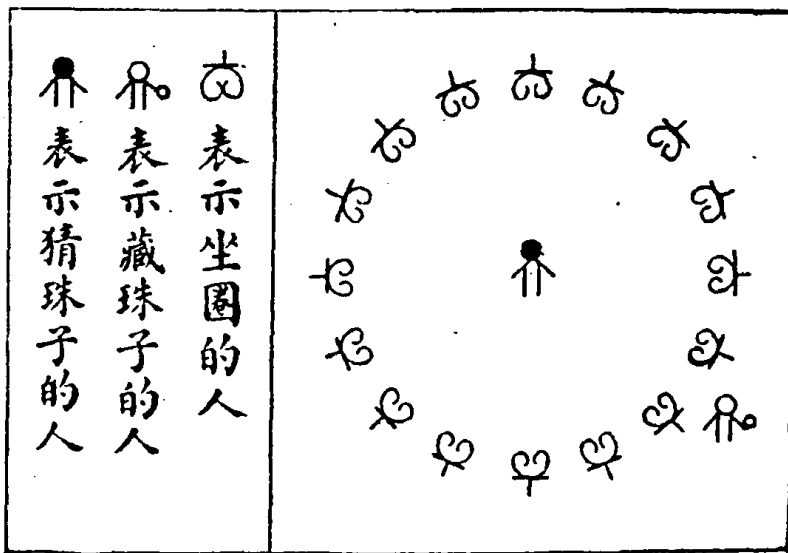 表示坐圈的人
表示藏珠子的人
表示猜珠子的人